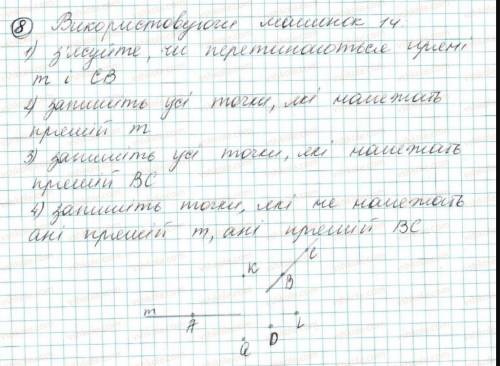 8 Використовуючи малюнок 14
1) з'ясуйте, чи перетинаються прямі
m і CB
2) запишіть усі точки, які належать
прямій m
3) запишіть усі точки, які належать
прямій BC
4) запишіть точки, які не належать
ані прямій m, ані прямій BC.
C
K
B
m
A
L
D
Q